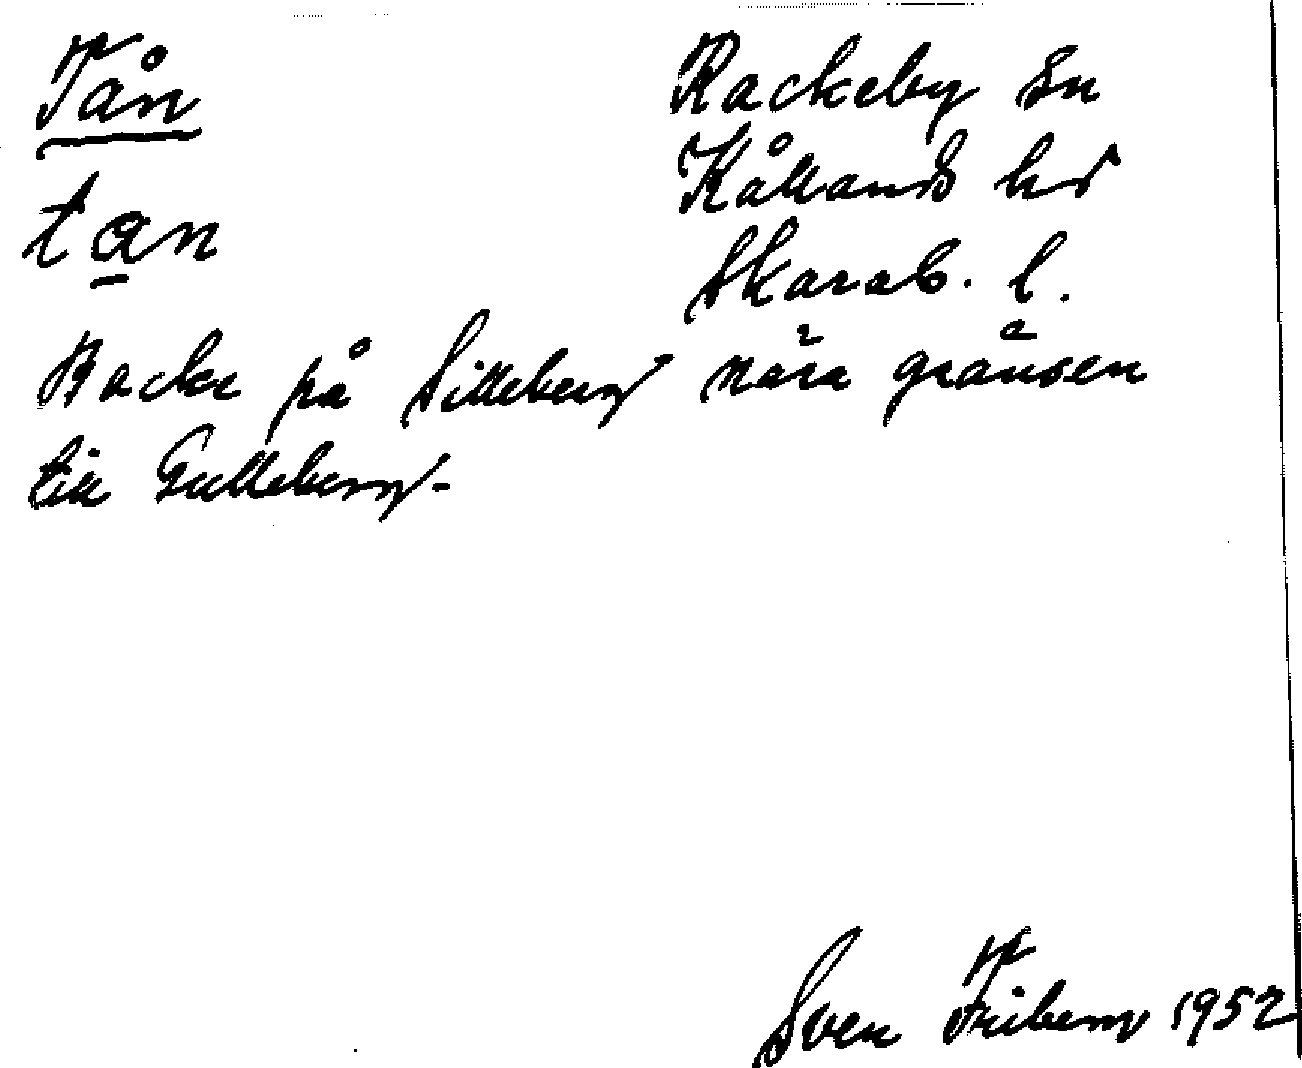 Tån
Rackeby Sn
tan
Kållands hd
Skarab. l.
Backe på Lilleberg nära gränsen
till Gulleberg.
Sven Friberg 1952